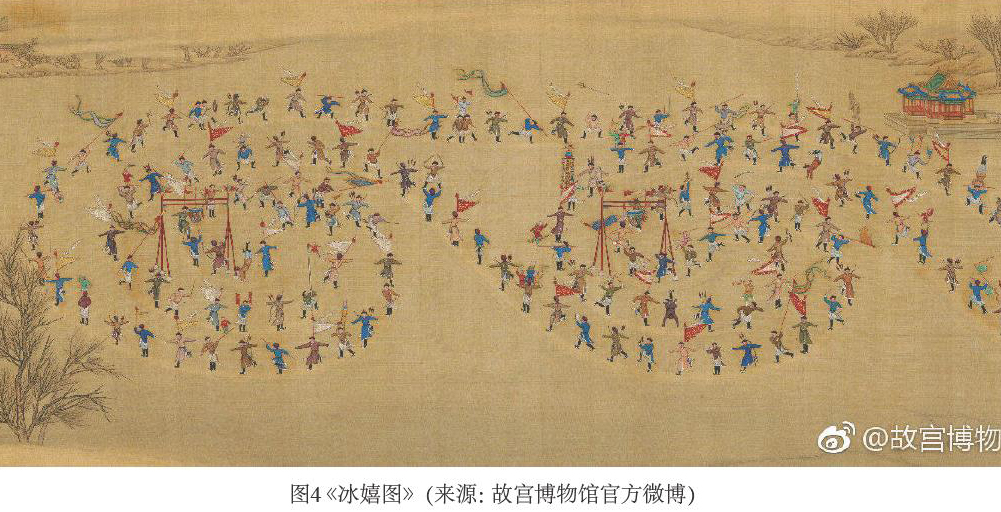 @故宫博物
图4《冰嬉图》(来源: 故宫博物馆官方微博)